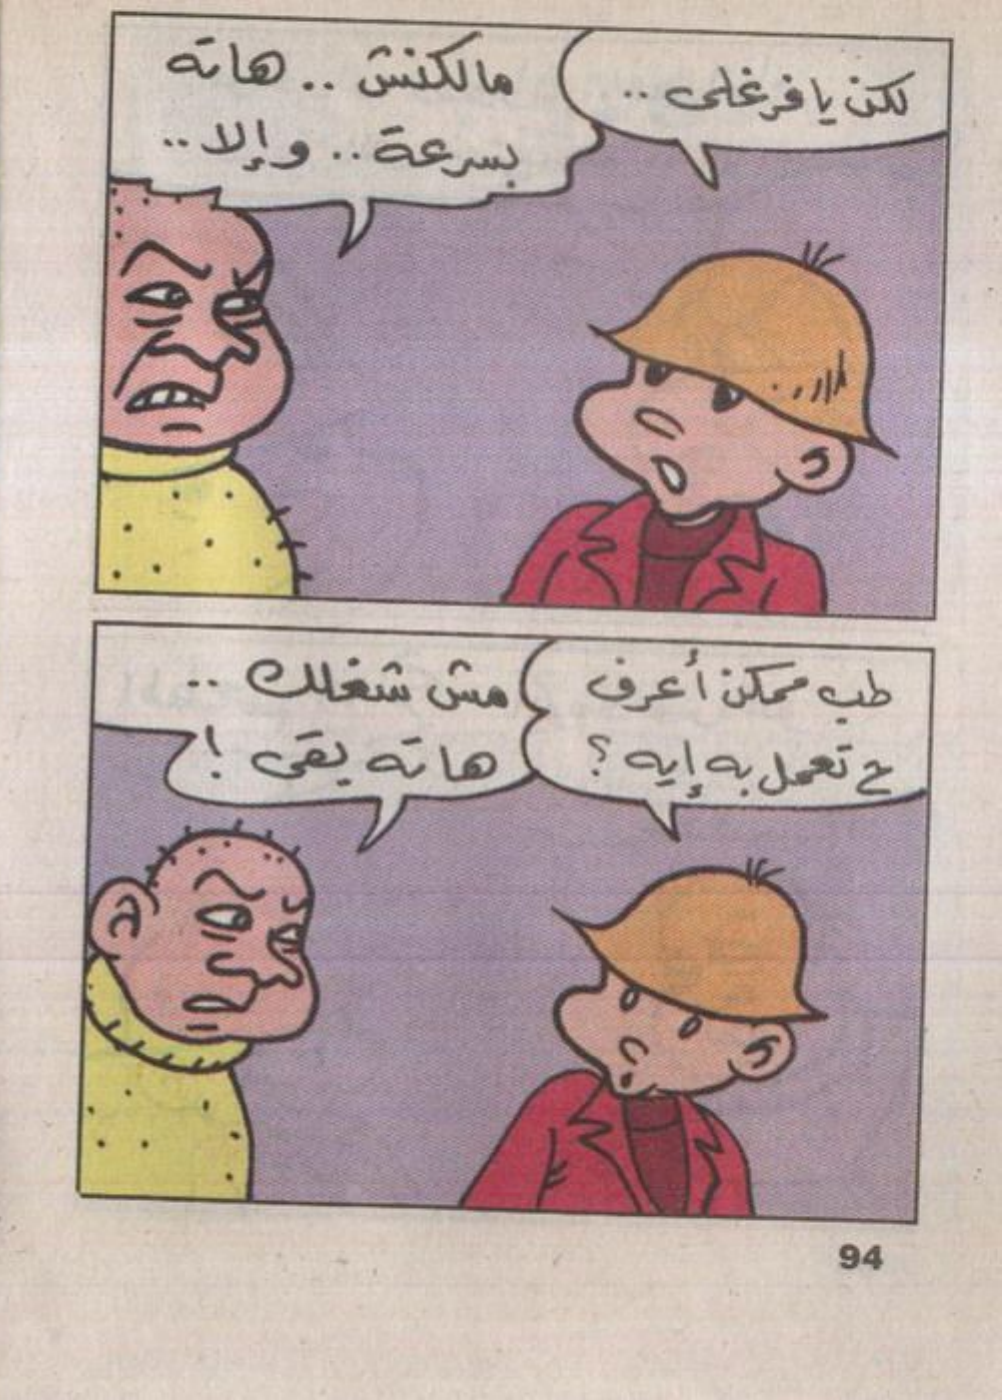 لكن يا فرغلى ..
مالكنش .. هاته
بسرعة .. وإلا ..
طب ممكن أعرف
ح تعمل به إيه ؟
مش شغلك ..
هاته بقى !
94